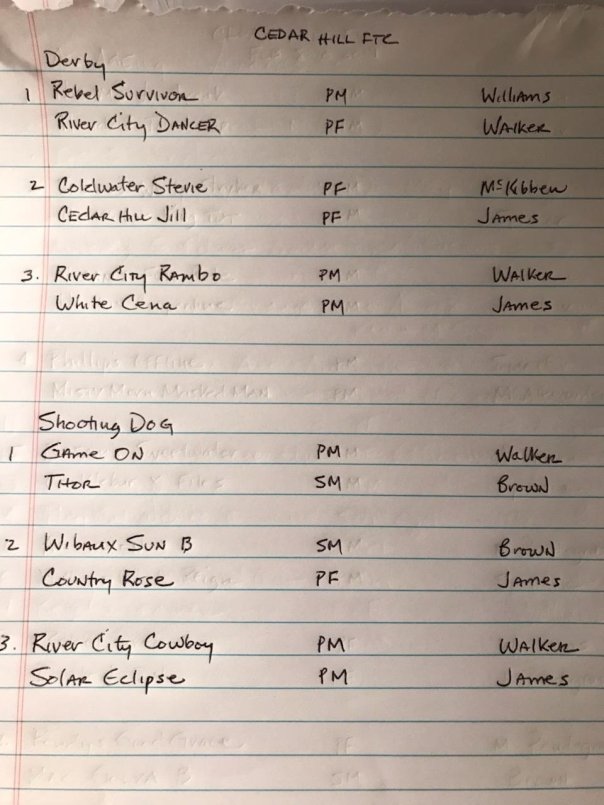 CEDAR HILL FTC
Derby
1 Rebel Survivor PM Williams
River City Dancer PF Walker
2 Coldwater Stevie PF McKibben
Cedar Hill Jill PF James
3. River City Rambo PM Walker
White Cena PM James
Shooting Dog
1 Game On PM Walker
Thor SM Brown
2 Wibaux Sun B SM Brown
Country Rose PF James
3. River City Cowboy PM Walker
Solar Eclipse PM James